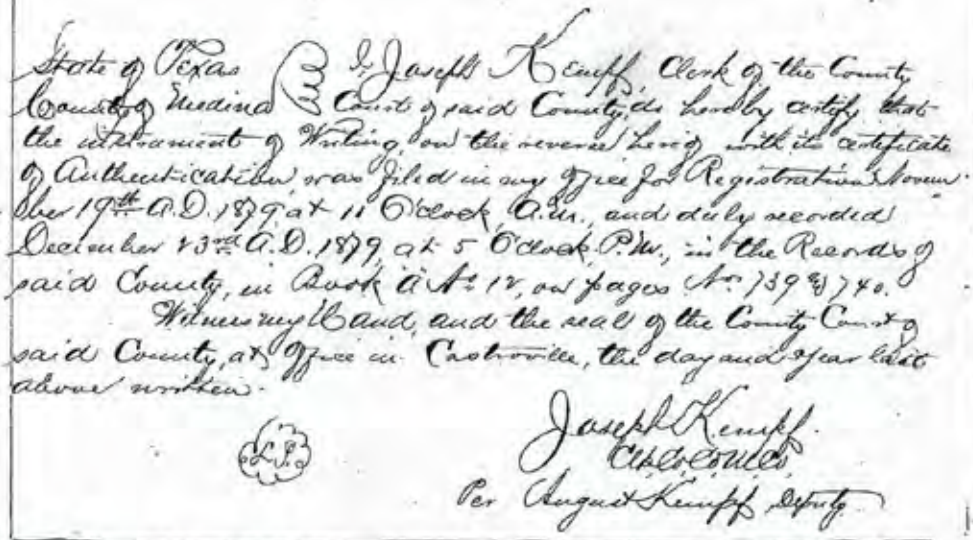 State of Texas I, Joseph Kempf, Clerk of the County
County of Medina Court of said County, do hereby certify, that
the instrument of Writing, on the reverse hereof with its certificate
of Authentication, was filed in my office for Registration Novem-
ber 19th A.D. 1879, at 11 O'clock, A.M., and duly recorded
December 23rd A.D. 1879, at 5 O'clock P.M., in the Records of
said County, in Book A No 12, on pages Nos 739 & 740.
Witness my Hand, and the seal of the County Court of
said County, at office in Castroville, the day and year last
above written.
Joseph Kempf.
L.S.
Per August Kempf, Deputy.